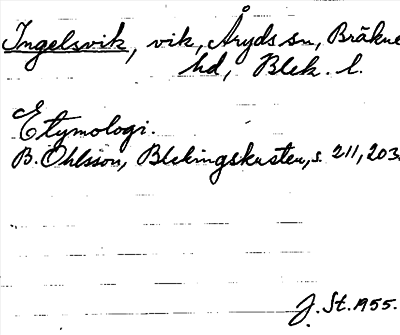 Ingelsvik, vik, Åryds sn, Bräkne
hd, Blek. l.
Etymologi.
B. Ohlsson, Blekingskusten, s. 211, 203.
J. St. 1955.